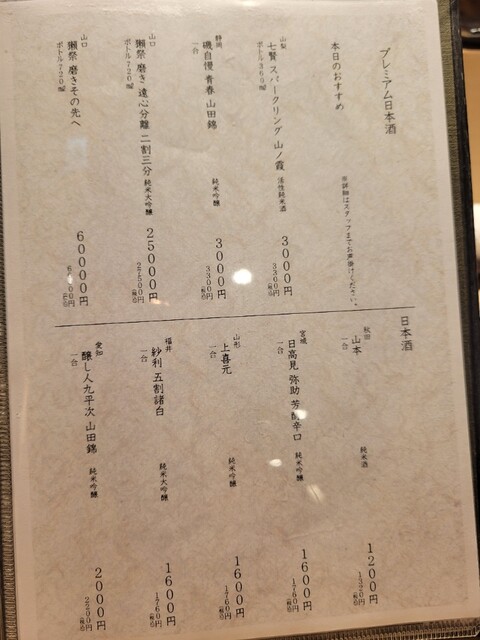 プレミアム日本酒
本日のおすすめ
※詳細はスタッフまでお声掛けください。
山梨
七賢 スパークリング 山ノ霞 活性純米酒 3000円
ボトル360㎖ 3300円(税込)
静岡
磯自慢 青春 山田錦 純米吟醸 3000円
一合 3300円(税込)
山口
獺祭 磨き 遠心分離 二割三分 純米大吟醸 25000円
ボトル720㎖ 27500円(税込)
山口
獺祭 磨きその先へ 60000円
ボトル720㎖ 円(税込)
日本酒
秋田
山本 純米酒 1200円
一合 1320円(税込)
宮城
日高見 弥助 芳醇辛口 純米吟醸 1600円
一合 1760円(税込)
山形
上喜元 純米吟醸 1600円
一合 1760円(税込)
福井
紗利 五割諸白 純米大吟醸 1600円
一合 1760円(税込)
愛知
醸し人九平次 山田錦 純米吟醸 2000円
一合 2200円(税込)